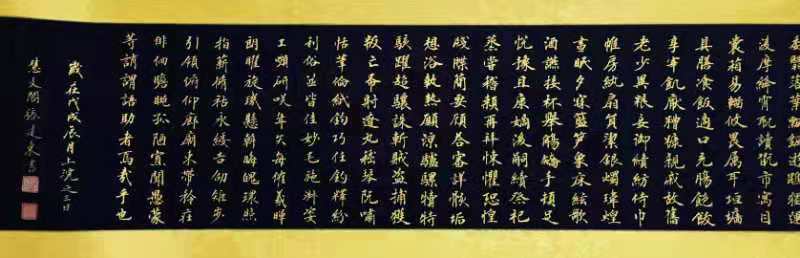 委翳落葉飄颻遊鵾獨運
凌摩絳霄耽讀翫市寓目
囊箱易輶攸畏屬耳垣墻
具膳飡飯適口充腸飽飫
烹宰飢厭糟糠親戚故舊
老少異糧妾御績紡侍巾
帷房紈扇圓潔銀燭煒煌
晝眠夕寐藍笋象床絃歌
酒讌接杯舉觴矯手頓足
悅豫且康嫡後嗣續祭祀
蒸嘗稽顙再拜悚懼恐惶
牋牒簡要顧答審詳骸垢
想浴執熱願涼驢騾犢特
駭躍超驤誅斬賊盜捕獲
叛亡布射遼丸嵇琴阮嘯
恬筆倫紙鈞巧任釣釋紛
利俗並皆佳妙毛施淑姿
工顰妍笑年矢每催羲暉
朗曜旋璣懸斡晦魄環照
指薪脩祜永綏吉劭矩步
引領俯仰廊廟束帶矜莊
徘徊瞻眺孤陋寡聞愚蒙
等誚謂語助者焉哉乎也
歲在戊戌辰月上浣之三日
慧文閣張建東書